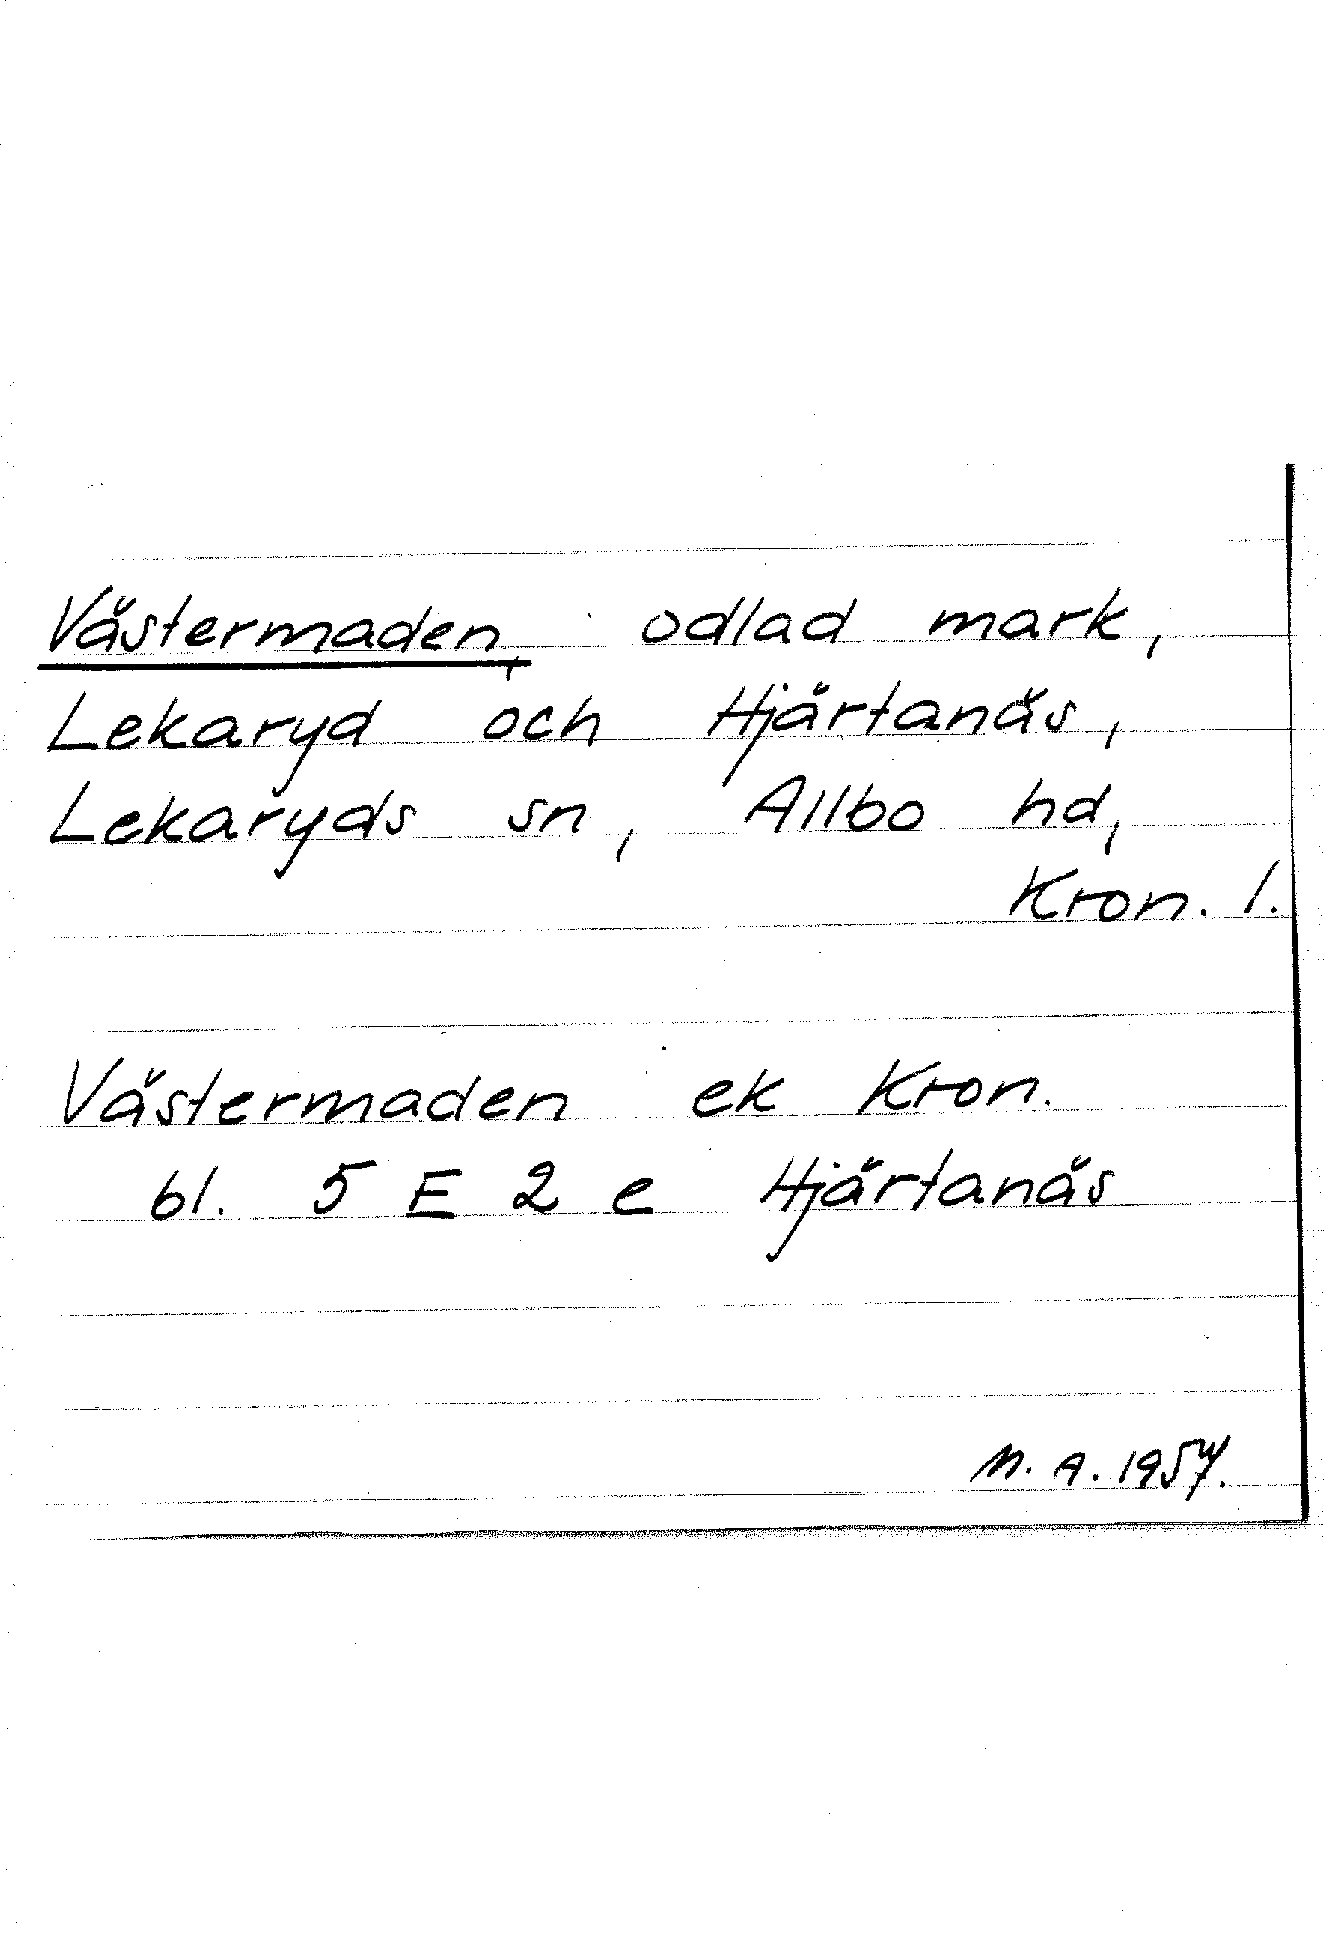 Västermaden, odlad mark,
Lekaryd och Hjärtanäs,
Lekaryds sn, Allbo hd,
Kron. l.
Västermaden ek Kron.
bl. 5 E 2 e Hjärtanäs
M. A. 1957.